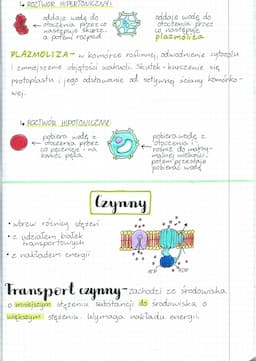 ↳ ROZTWÓR HIPERTONICZNY:
oddaje wodę do
otoczenia przez co
następuje skurcz
a potem rozpad
oddaje wodę do
otoczenia przez
co następuje
plazmoliza
PLAZMOLIZA - w komórce roślinnej, odwodnienie cytozolu
i zmniejszenie objętości wakuoli. Skutek - kurczenie się
protoplastu i jego odstawanie od sztywnej ściany komórko-
wej.
↳ ROZTWÓR HIPOTONICZNY:
pobiera wodę z
otoczenia przez
co pęcznieje i na
koniec pęka
pobiera wodę z
otoczenia i
rośnie do maksy-
malnej wielkości,
potem przestaje
pobierać wodę
Czynny
• wbrew różnicy stężeń
• z udziałem białek
transportowych
• z nakładem energii
ATP ADP
Transport czynny - zachodzi ze środowiska
o mniejszym stężeniu substancji do środowiska o
większym stężeniu. Wymaga nakładu energii.